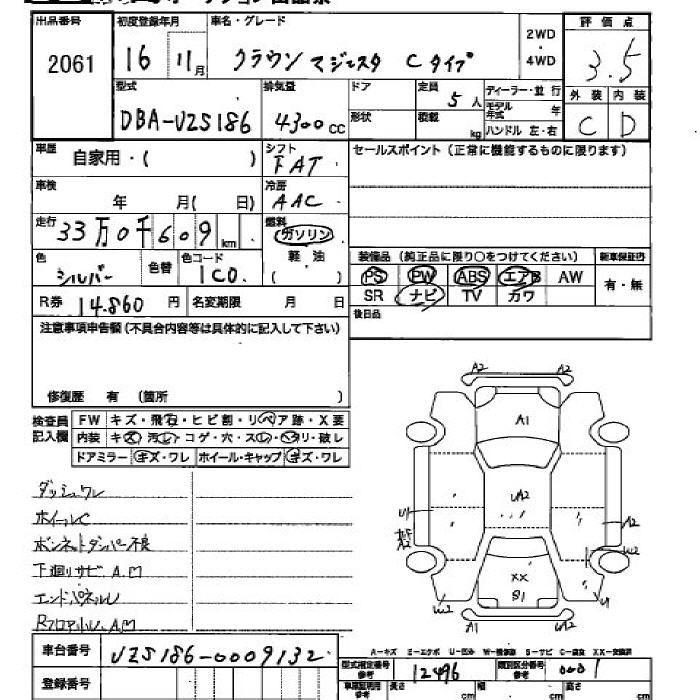 出品番号 初度登録年月 車名・グレード 2WD・4WD 評価点
2061 16 11月 クラウン マジェスタ Cタイプ 3.5
型式 排気量 ドア 定員 5人 ディーラー・並行 外装 内装
DBA-UZS186 4300cc 形状 積載 kg モデル年式 年 ハンドル 左・右 C D
車歴 自家用・( ) シフト FAT セールスポイント (正常に機能するものに限ります)
車検 年 月( 日) 冷房 AAC
走行 33万0千609km 燃料 ガソリン
軽油
( )
色 シルバー 色替 色コード 1C0 装備品 (純正品に限り○をつけてください) 新車保証書
PS PW ABS エアB AW 有・無
SR ナビ TV カワ
R券 14,860円 名変期限 月 日 後日品
注意事項申告欄 (不具合内容等は具体的に記入して下さい)
修復歴 有 (箇所 )
検査員記入欄 FW キズ・飛石・ヒビ割・リペア跡・X要
内装 キズ・汚レ・コゲ・穴・スレ・ヘタリ・破レ
ドアミラー キズ・ワレ ホイール・キャップ キズ・ワレ
A2 A2
A1
UA2
U1 A2
A2 W2
XX
S1
W2 U
A1 W2
ダッシュワレ
ホイールC
ボンネットダンパー不良
下廻りサビ、A凹
エンドパネルU
Rフロア小U、A凹
A-キズ E-エクボ U-凹み W-補修跡 S-サビ C-腐食 XX-交換済
車台番号 UZS186-0009132
型式指定番号 参考 12496 類別区分番号 参考 0001
登録番号 車庫証明用 参考 長さ cm 幅 cm 高さ cm